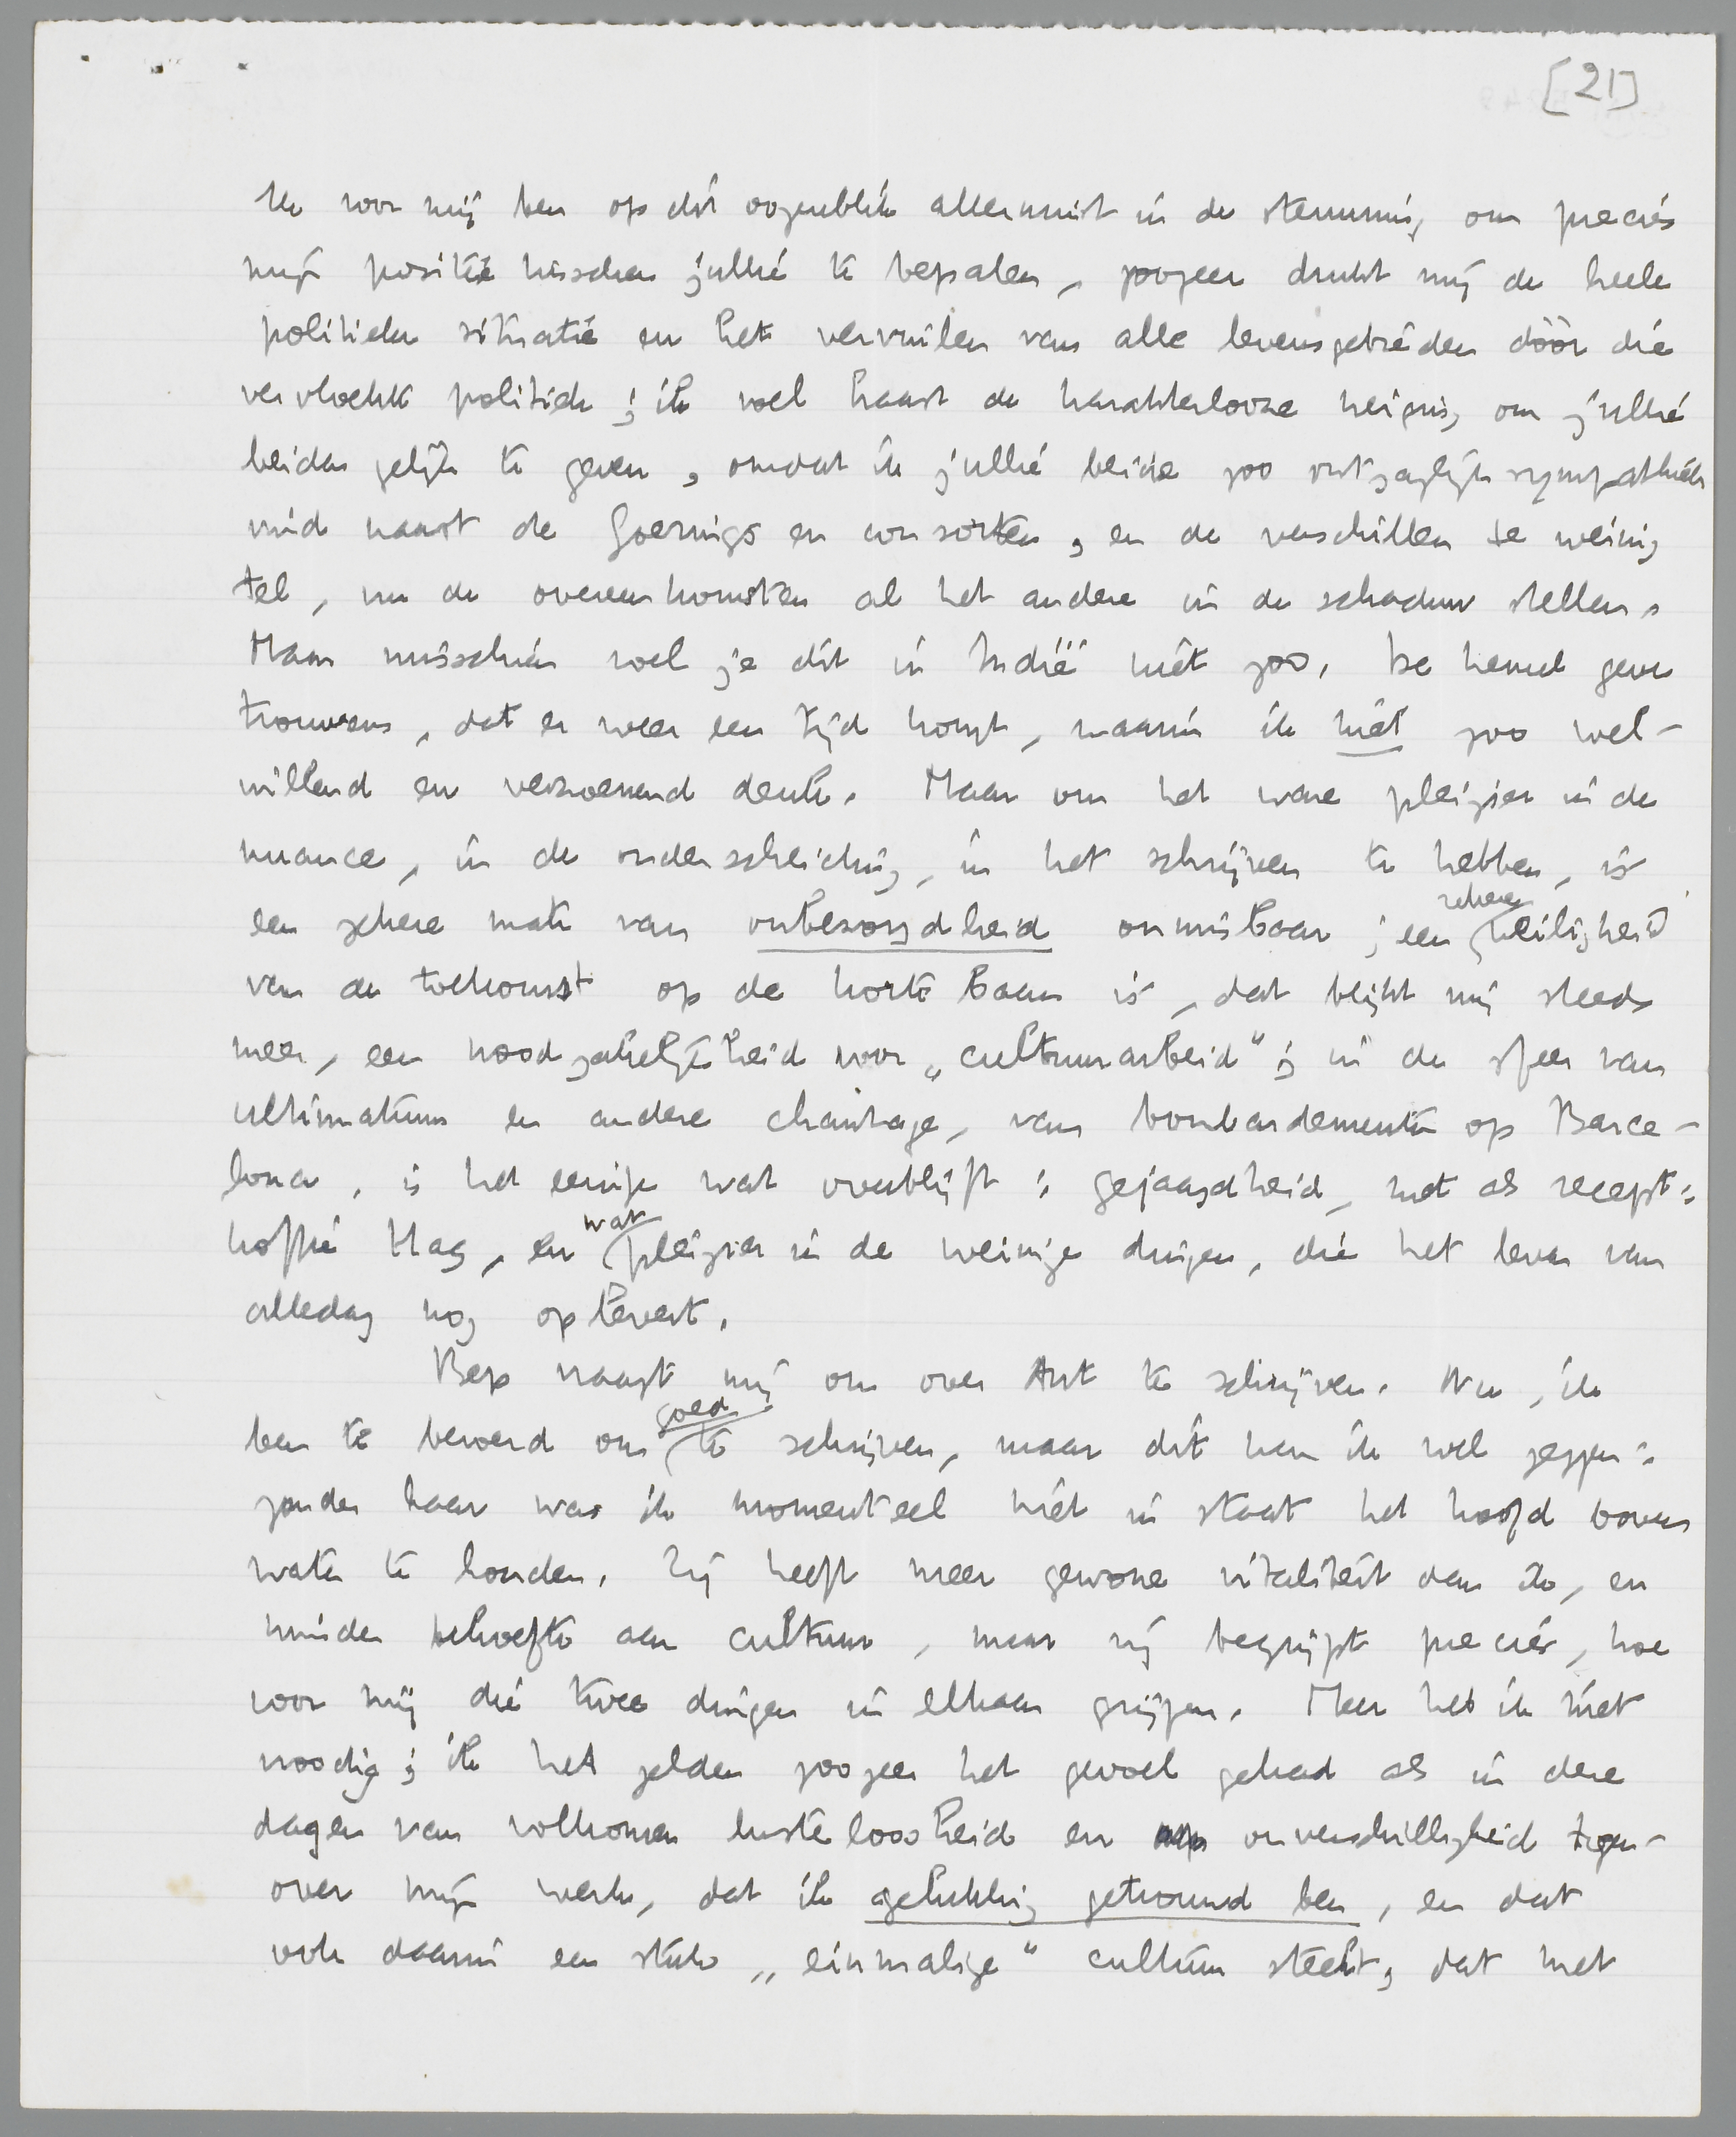 [21]
Ik voor mij ben op dit oogenblik allerminst in de stemming om precies
mijn positie tusschen jullie te bepalen, zoozeer drukt mij de heele
politieke situatie en het vervuilen van alle levensgebieden dóór die
vervloekte politiek; ik voel haast de karakterlooze neiging om jullie
beiden gelijk te geven, omdat ik jullie beide zoo ontzaglijk sympathiek
vind naast de Goerings en consorten, en de verschillen te weinig
tel, nu de overeenkomsten al het andere in de schaduw stellen.
Maar misschien voel je dit in Indië niet zoo. De hemel geve
trouwens, dat er weer een tijd komt, waarin ik niet zoo wel-
willend en verzoenend denk. Maar om het ware pleizier in de
nuance, in de onderscheiding, in het schrijven te hebben, is
een zekere mate van onbezorgdheid onmisbaar; een zekere veiligheid
van de toekomst op de korte baan is, dat blijkt mij steeds
meer, een noodzakelijkheid voor „cultuurarbeid"; in de sfeer van
ultimatum en andere chantage, van bombardementen op Barce-
lona, is het eenige wat overblijft: gejaagdheid, met als recept:
koffie Hag, en wat pleizier in de weinige dingen, die het leven van
alledag nog oplevert.
Bep vraagt mij om over Ant te schrijven. Nu, ik
ben te beroerd om goed te schrijven, maar dit kan ik wel zeggen:
zonder haar was ik momenteel niet in staat het hoofd boven
water te houden. Zij heeft meer gewone vitaliteit dan ik, en
minder behoefte aan cultuur, maar zij begrijpt precies, hoe
voor mij die twee dingen in elkaar grijpen. Meer heb ik niet
noodig; ik heb zelden zoozeer het gevoel gehad als in deze
dagen van volkomen lusteloosheid en onverschilligheid tegen-
over mijn werk, dat ik gelukkig getrouwd ben, en dat
ook daarin een stuk „einmalige" cultuur steekt, dat met